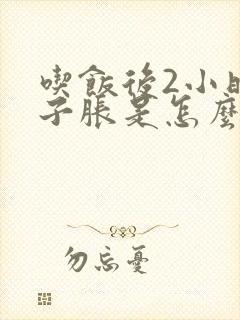 喫飯後2小
子脹是怎麼
勿忘憂